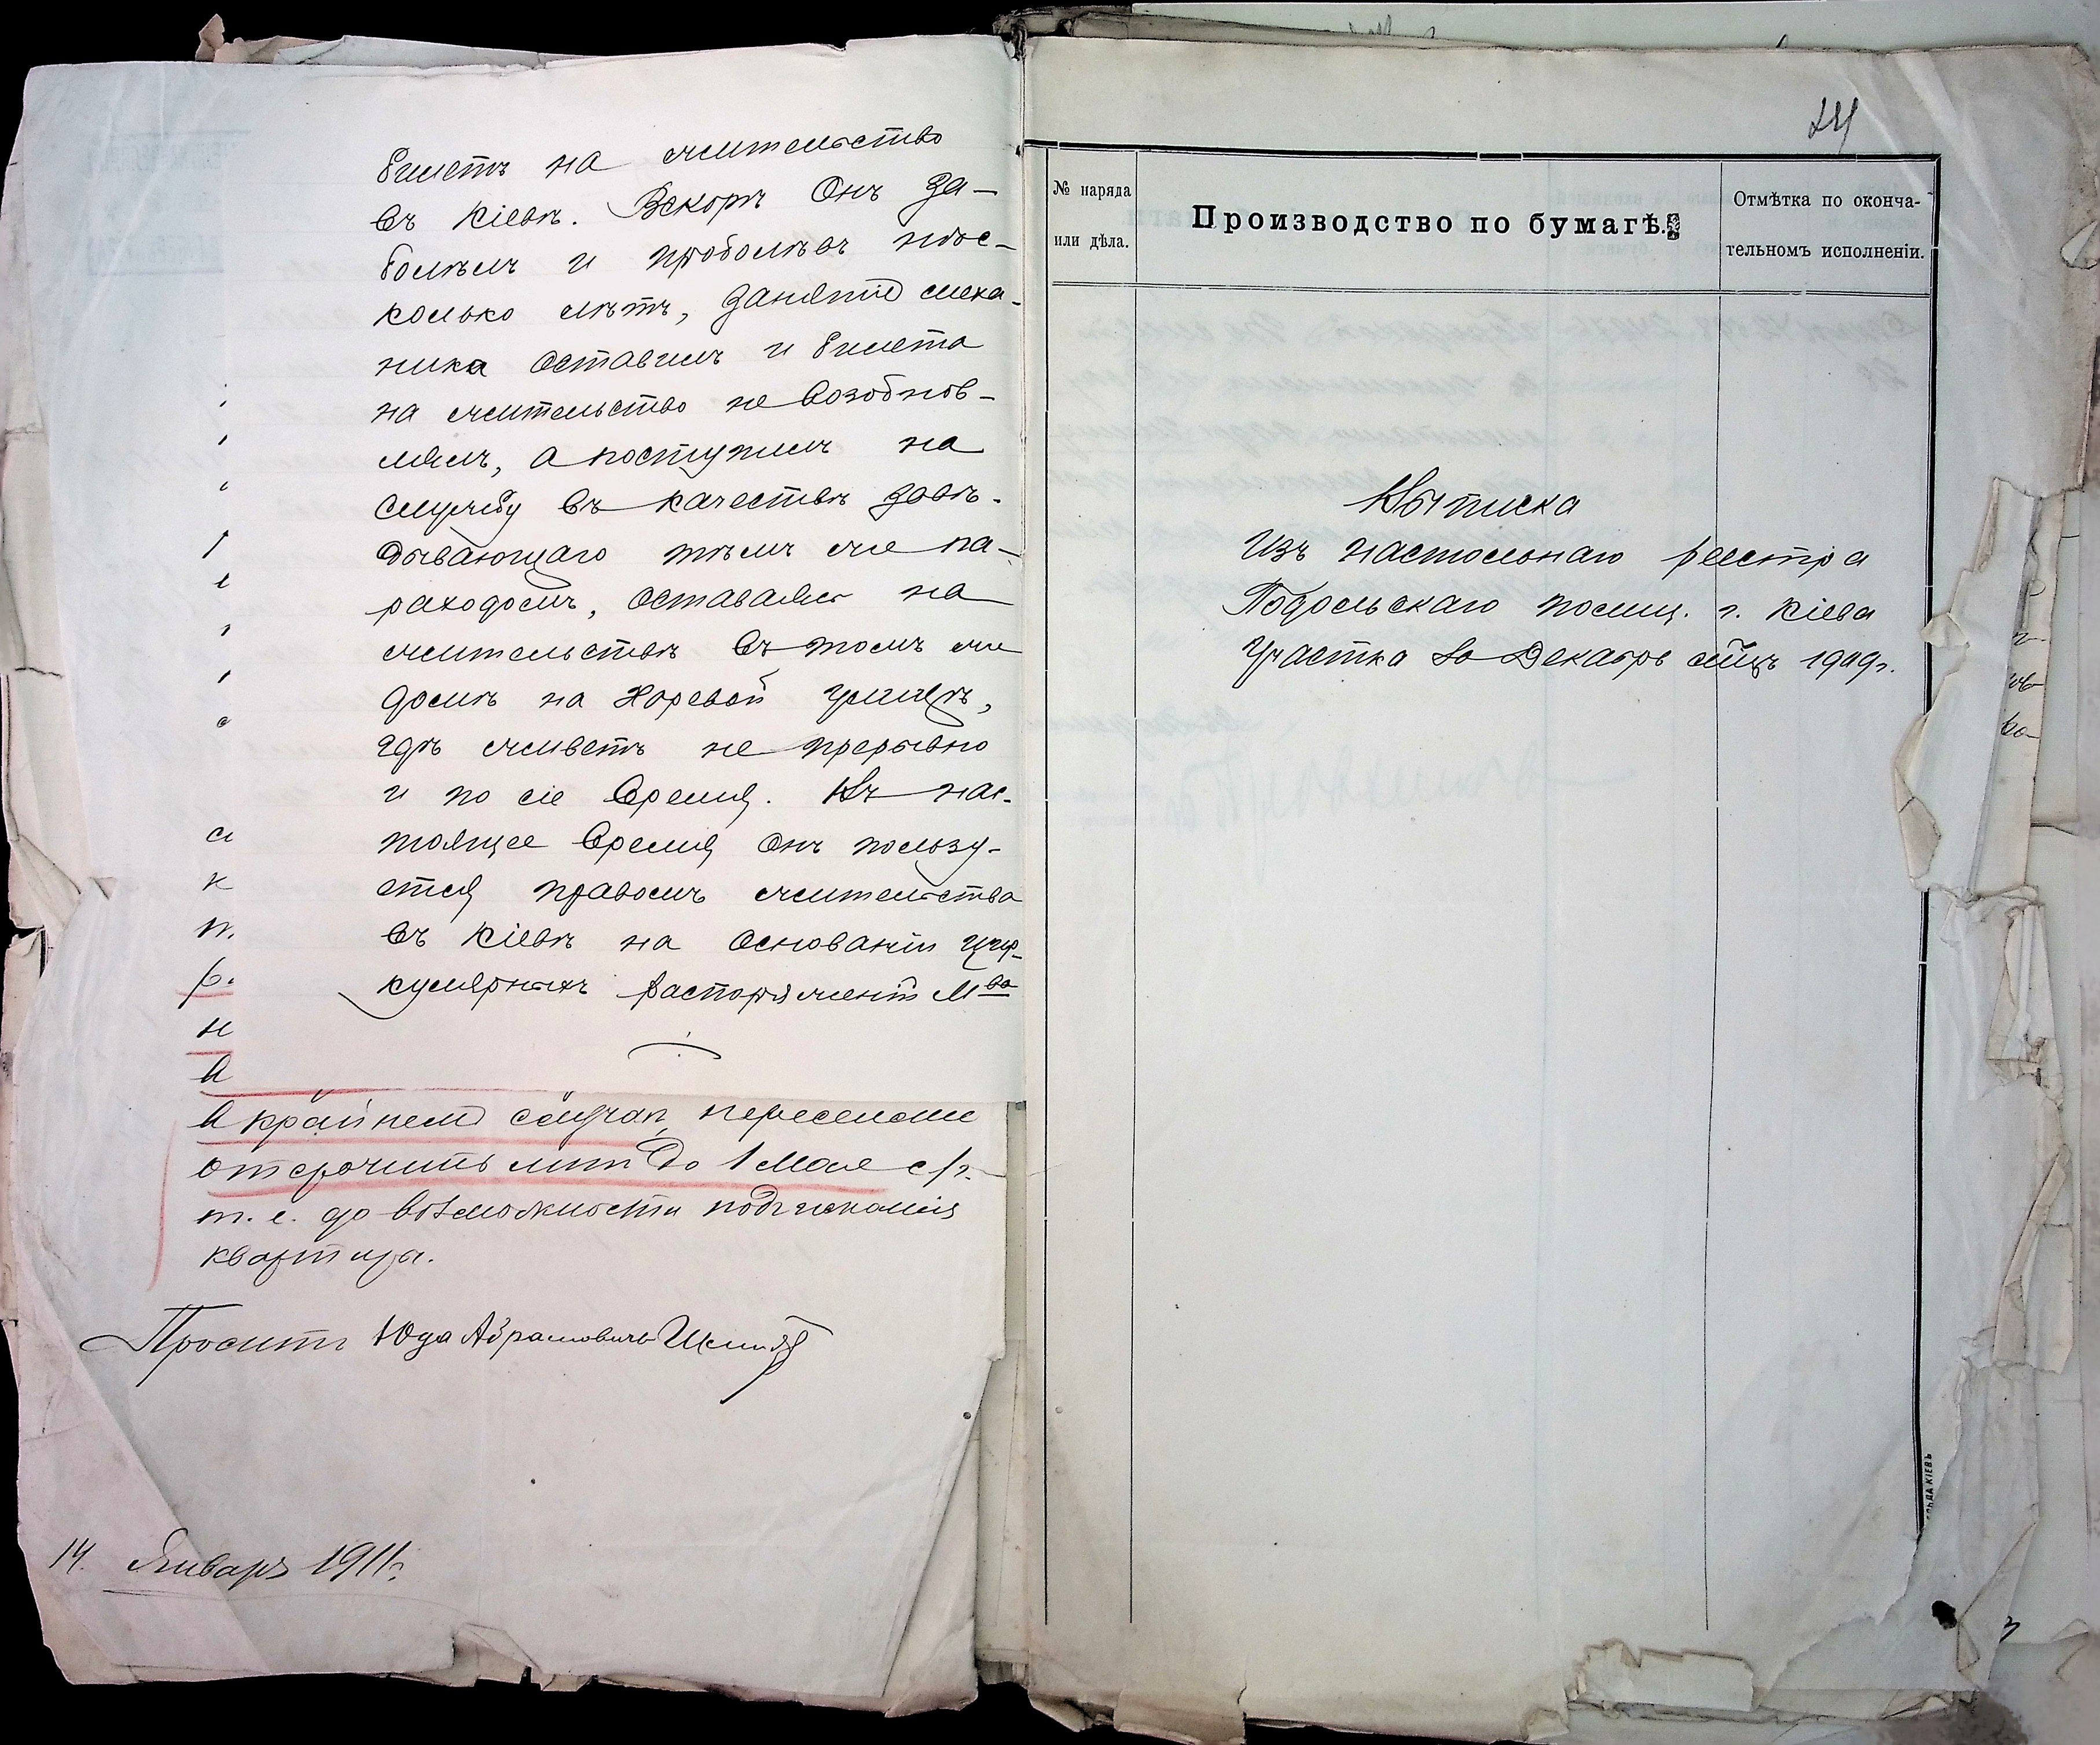 билетъ на жительство
въ Кіевѣ. Вскорѣ Онъ за-
болѣлъ и проболѣвъ нѣс-
колько лѣтъ, занятіе меха-
ника оставилъ и билета
на жительство не возобнов-
лялъ, а поступилъ на
службу въ качествѣ завѣ-
дывающаго тѣмъ же па-
роходомъ, оставаясь на
жительствѣ въ томъ же
домѣ на Хоревой улицѣ,
гдѣ живетъ не прерывно
и по сіе время. Въ нас-
тоящее время онъ пользу-
ется правомъ жительства
въ Кіевѣ на основаніи цир-
кулярныхъ распоряженій М-ва
В крайнемъ случаѣ, переселеніе
отсрочить мнѣ до 1 Мая с/г.
т. е. до возможности подысканія
квартиры.
Проситъ Юда Абрамовичъ
14 Январь 1911 г.
24
№ наряда или дѣла.
Производство по бумагѣ.
Отмѣтка по оконча-
тельномъ исполненіи.
Выписка
Изъ настольнаго реестра
Подольскаго полиц. г. Кіева
Участка за Декабрь мѣц 1909 г.